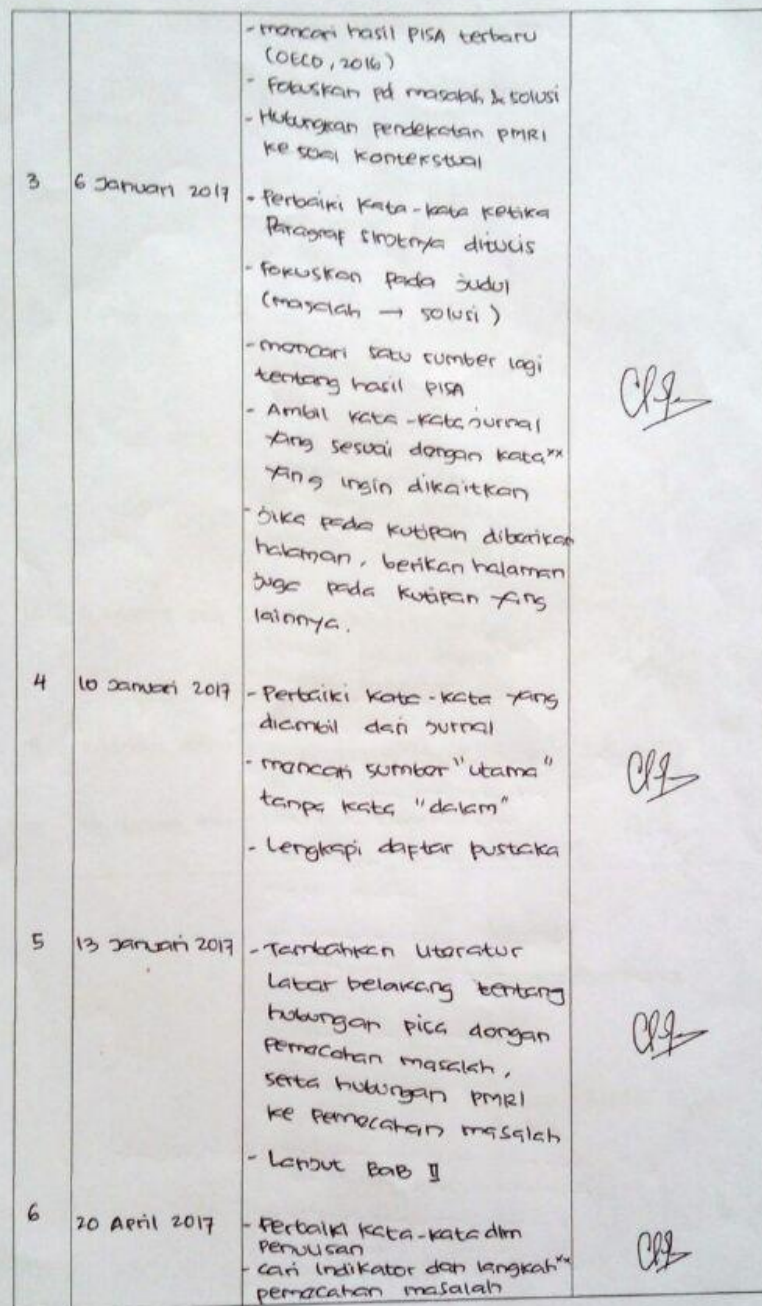 - mencari hasil PISA terbaru
(OECD, 2016)
- Fokuskan pd masalah & solusi
- Hubungkan pendekatan PMRI
ke soal kontekstual
3 6 Januari 2017 - Perbaiki kata-kata ketika
Paragraf ditulis
- Fokuskan pada Judul
(masalah → solusi)
- mencari satu sumber lagi
tentang hasil PISA
- Ambil kata-kata jurnal
yang sesuai dengan kata"
yang ingin dikaitkan
- Jika pada kutipan diberikan
halaman, berikan halaman
juga pada kutipan yang
lainnya.
4 10 Januari 2017 - Perbaiki kata-kata yang
diambil dari jurnal
- mencari sumber "utama"
tanpa kata "dalam"
- Lengkapi daptar pustaka
5 13 Januari 2017 - Tambahkan literatur
Latar belakang tentang
hubungan pisa dengan
pemecahan masalah,
serta hubungan PMRI
ke pemecahan masalah
- Lanjut BAB II
6 20 April 2017 - Perbaiki kata-kata dlm
penulisan
- cari indikator dan langkah"
pemecahan masalah